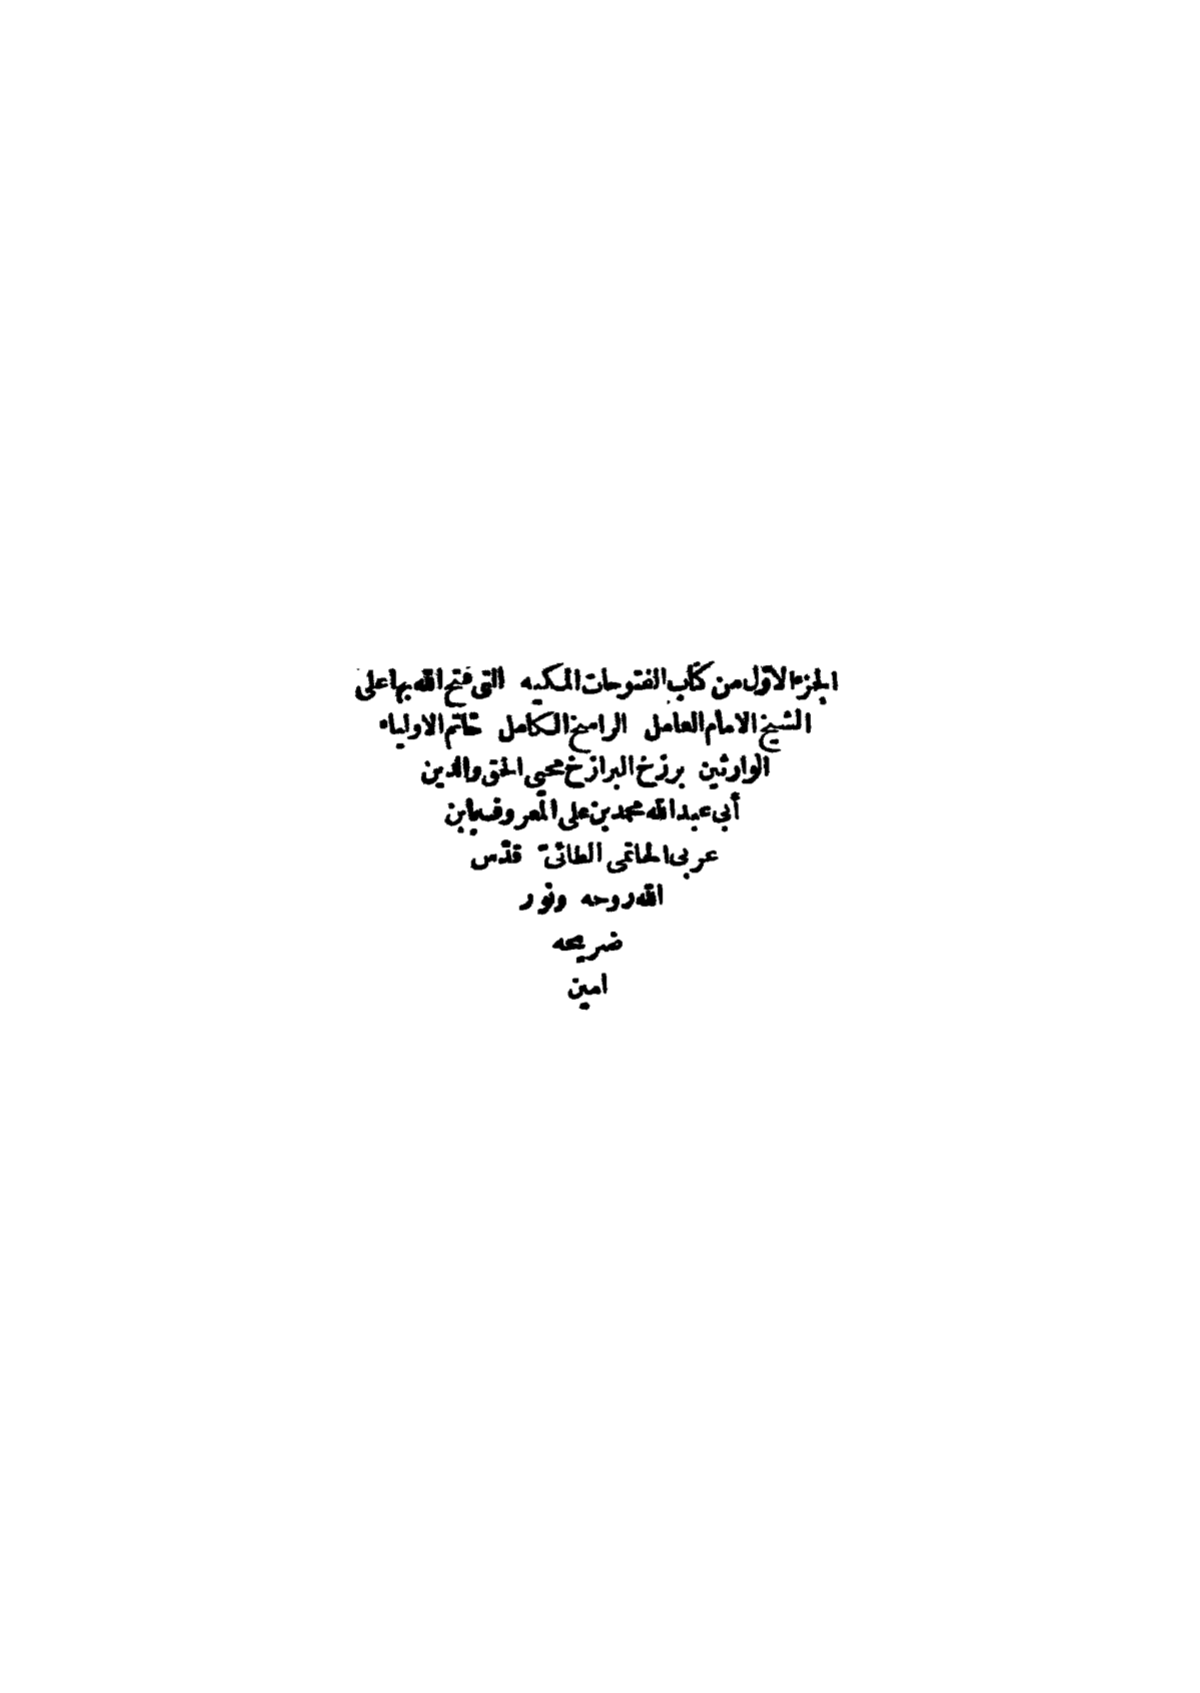 الجزء الاوّل من كتاب الفتوحات المكيه التى فتح الله بها على
الشيخ الامام العامل الراسخ الكامل خاتم الاولياء
الوارثين برزخ البرازخ محيى الحق والدين
أبى عبد الله محمد بن على المعروف بابن
عربى الحاتمى الطائىّ قدّس
الله روحه ونور
ضريحه
امين